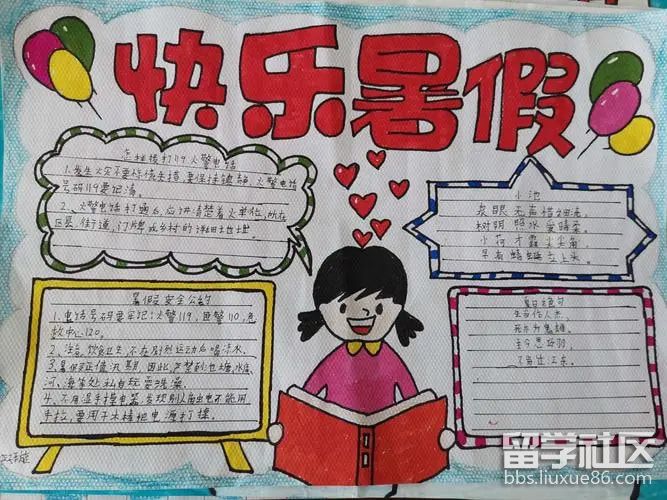 快乐暑假
怎样拨打119火警电话
1、发生火灾不要惊慌失措,要保持镇静,火警电话
号码119要记清。
2、火警电话打通后,应讲清楚着火单位,所在
区县、街道、门牌或乡村的详细地址。
小池
泉眼无声惜细流,
树阴照水爱晴柔。
小荷才露尖尖角,
早有蜻蜓立上头。
暑假安全公约
1、电话号码要牢记:火警119,匪警110,急
救中心120。
2、注意饮食卫生,不在剧烈运动后喝冷水。
3、暑假正值汛期,因此,严禁到池塘,水库、
河、海等处私自玩耍洗澡。
4、不用湿手摸电器,发现别人触电不能用
手拉,要用干木棒把电源打掉。
夏日绝句
生当作人杰,
死亦为鬼雄。
至今思项羽
不肯过江东。
留学社区
bbs.liuxue86.com